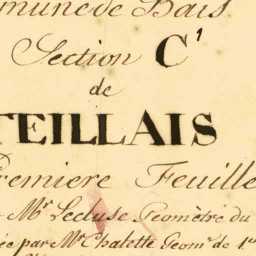 mune de Bais
Section C1
de
TEILLAIS
Premiere Feuille
Mr Lecluse Géomètre du
ée par Mr Chalette Géomr de 1re